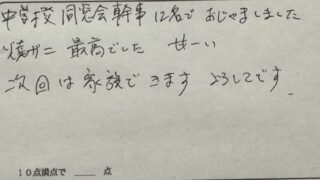 中学校 同窓会幹事 12名で おじゃましました
焼ガニ 最高でした せーい
次回は家族できます よろしくです。
10点満点で ____ 点